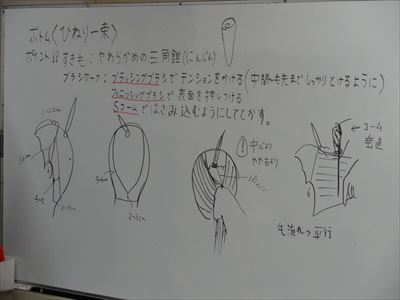 ボトム〈ひねり一束〉
ポイント すき毛：やわらかめの三角錐(にんじん)
ブラシワーク：ブラッシングブラシでテンションをかける(中間〜毛先までしっかりとけるように)
フィニッシングブラシで表面を押しつける
Sコームではさみ込むようにしてとかす。
中心より
やや右より
←コーム
垂直
毛流れ→平行